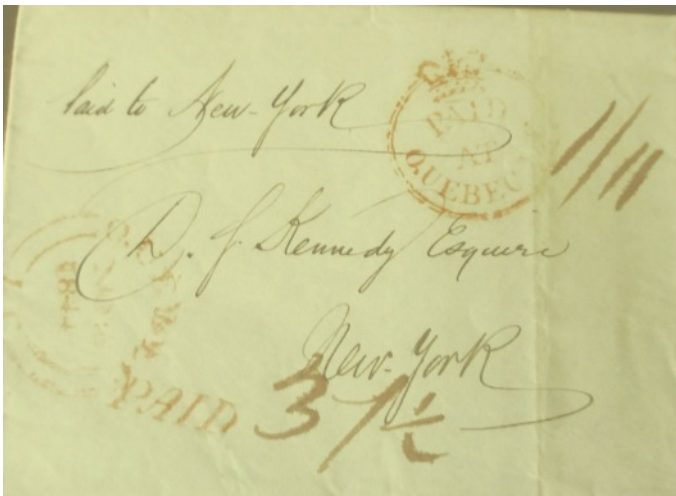 Paid to New-York
PAID
AT
QUEBEC
1/11
D. J. Kennedy Esquire
New-York
PAID
37½